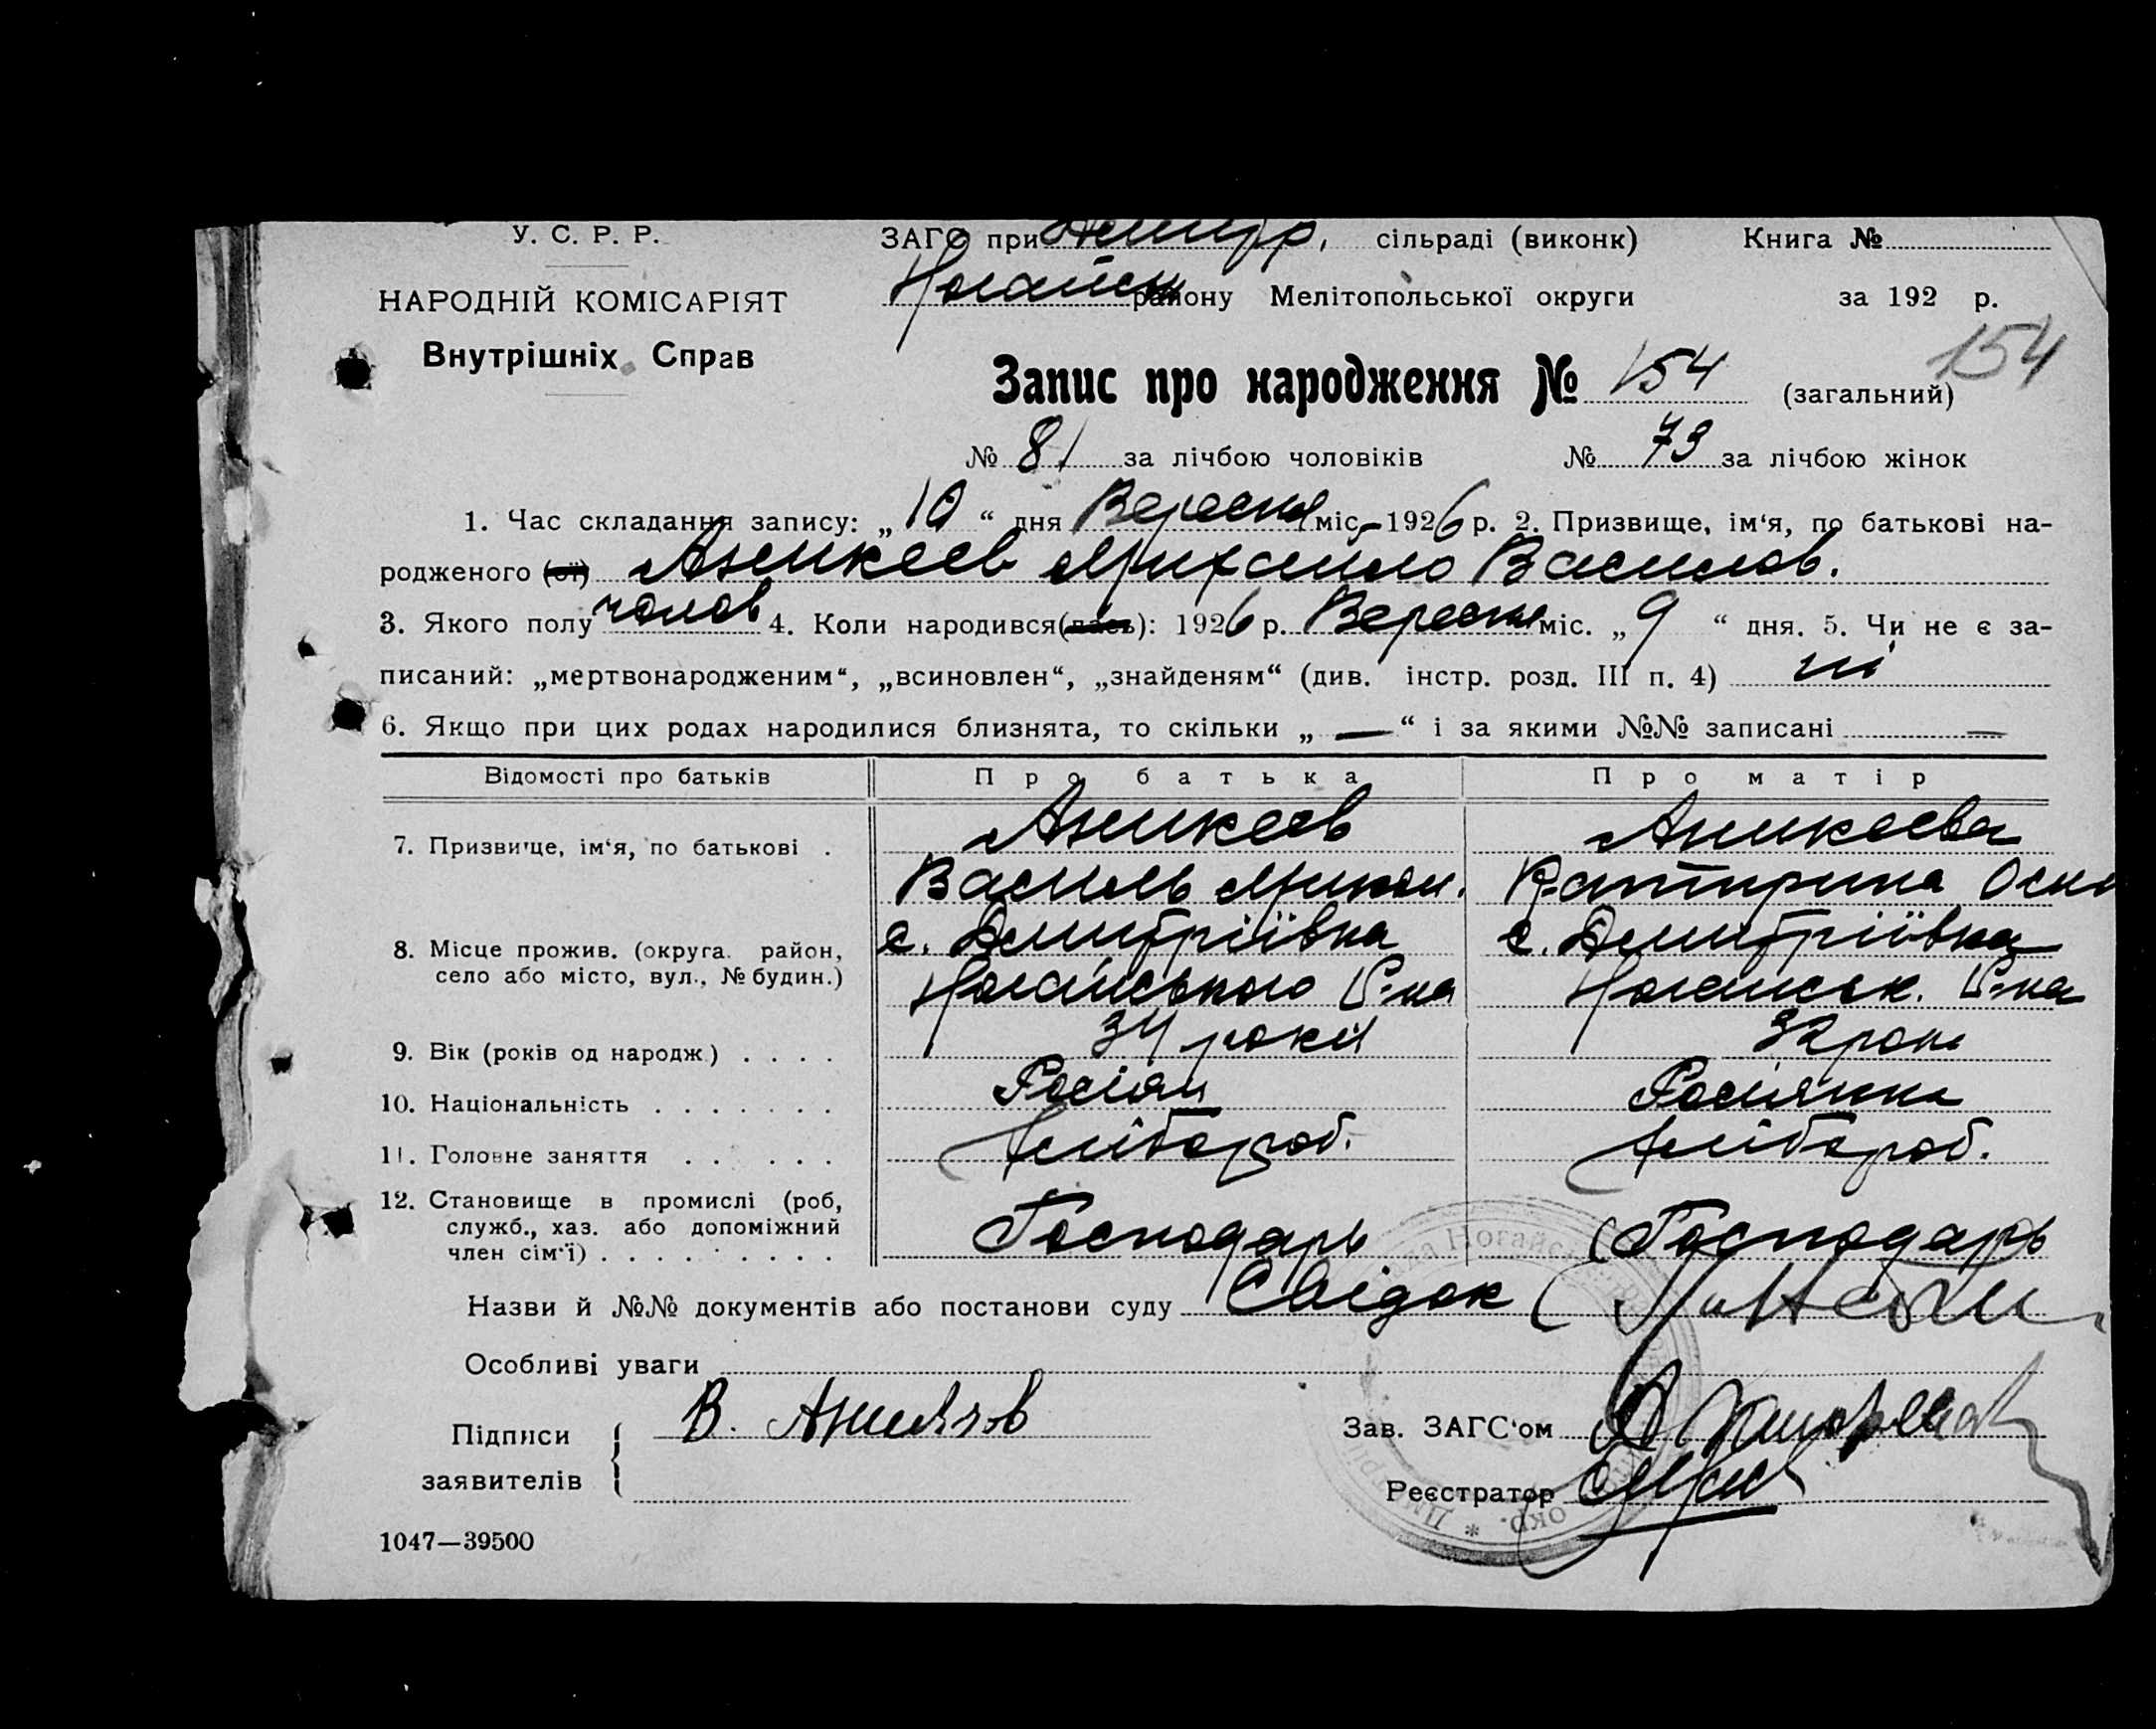 У. С. Р. Р.
НАРОДНІЙ КОМІСАРІЯТ
Внутрішніх Справ
ЗАГС при Дмитр, сільраді (виконк)
Книга №
Ногайськ району Мелітопольської округи
за 192 р.
154
Запис про народження № 154 (загальний)
№ 81 за лічбою чоловіків № 73 за лічбою жінок
1. Час складання запису: „10“ дня Вересня міс. 1926 р. 2. Призвище, ім‘я, по батькові на-
родженого (ої) Аникеев Михайло Васильов.
3. Якого полу чолов 4. Коли народився(лась): 1926 р. Вересня міс. „9“ дня. 5. Чи не є за-
писаний: „мертвонародженим“, „всиновлен“, „знайденям“ (див. інстр. розд. III п. 4) ні
6. Якщо при цих родах народилися близнята, то скільки „—“ і за якими №№ записані —
Відомості про батьків Про батька Про матір
7. Призвище, ім‘я, по батькові . Аникеев Аникеева
Василь Микол. Катирина Оси
8. Місце прожив. (округа. район, с. Дмитріївка с. Дмитріївка
село або місто, вул., № будин.) Ногайського Р-на Ногайськ. Р-на
9. Вік (років од народж.) . . . . 34 роки 32 роки
10. Національність . . . . . . . Росіян Росіянка
11. Головне заняття . . . . . Хлібороб. Хлібороб.
12. Становище в промислі (роб, Господарь Господарь
служб., хаз. або допоміжний
член сім‘ї) . . . . . . . . .
Назви й №№ документів або постанови суду Свідок
Особливі уваги
Підписи В. Аникеев
заявителів
Зав. ЗАГС‘ом
Реєстратор
1047—39500